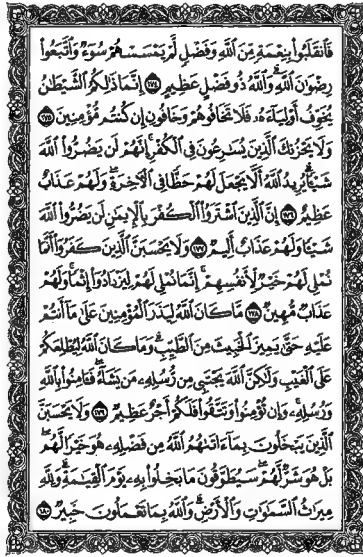 فَٱنقَلَبُوا۟ بِنِعْمَةٍ مِّنَ ٱللَّهِ وَفَضْلٍ لَّمْ يَمْسَسْهُمْ سُوٓءٌ وَٱتَّبَعُوا۟
رِضْوَٰنَ ٱللَّهِ ۗ وَٱللَّهُ ذُو فَضْلٍ عَظِيمٍ ﴿١٧٤﴾ إِنَّمَا ذَٰلِكُمُ ٱلشَّيْطَٰنُ
يُخَوِّفُ أَوْلِيَآءَهُۥ فَلَا تَخَافُوهُمْ وَخَافُونِ إِن كُنتُم مُّؤْمِنِينَ ﴿١٧٥﴾
وَلَا يَحْزُنكَ ٱلَّذِينَ يُسَٰرِعُونَ فِى ٱلْكُفْرِ ۚ إِنَّهُمْ لَن يَضُرُّوا۟ ٱللَّهَ
شَيْـًٔا ۗ يُرِيدُ ٱللَّهُ أَلَّا يَجْعَلَ لَهُمْ حَظًّا فِى ٱلْءَاخِرَةِ ۖ وَلَهُمْ عَذَابٌ
عَظِيمٌ ﴿١٧٦﴾ إِنَّ ٱلَّذِينَ ٱشْتَرَوُا۟ ٱلْكُفْرَ بِٱلْإِيمَٰنِ لَن يَضُرُّوا۟ ٱللَّهَ
شَيْـًٔا وَلَهُمْ عَذَابٌ أَلِيمٌ ﴿١٧٧﴾ وَلَا يَحْسَبَنَّ ٱلَّذِينَ كَفَرُوٓا۟ أَنَّمَا
نُمْلِى لَهُمْ خَيْرٌ لِّأَنفُسِهِمْ ۚ إِنَّمَا نُمْلِى لَهُمْ لِيَزْدَادُوٓا۟ إِثْمًا ۚ وَلَهُمْ
عَذَابٌ مُّهِينٌ ﴿١٧٨﴾ مَّا كَانَ ٱللَّهُ لِيَذَرَ ٱلْمُؤْمِنِينَ عَلَىٰ مَآ أَنتُمْ
عَلَيْهِ حَتَّىٰ يَمِيزَ ٱلْخَبِيثَ مِنَ ٱلطَّيِّبِ ۗ وَمَا كَانَ ٱللَّهُ لِيُطْلِعَكُمْ
عَلَى ٱلْغَيْبِ وَلَٰكِنَّ ٱللَّهَ يَجْتَبِى مِن رُّسُلِهِۦ مَن يَشَآءُ ۖ فَـَٔامِنُوا۟ بِٱللَّهِ
وَرُسُلِهِۦ ۚ وَإِن تُؤْمِنُوا۟ وَتَتَّقُوا۟ فَلَكُمْ أَجْرٌ عَظِيمٌ ﴿١٧٩﴾ وَلَا يَحْسَبَنَّ
ٱلَّذِينَ يَبْخَلُونَ بِمَآ ءَاتَىٰهُمُ ٱللَّهُ مِن فَضْلِهِۦ هُوَ خَيْرًا لَّهُم ۖ
بَلْ هُوَ شَرٌّ لَّهُمْ ۖ سَيُطَوَّقُونَ مَا بَخِلُوا۟ بِهِۦ يَوْمَ ٱلْقِيَٰمَةِ ۗ وَلِلَّهِ
مِيرَٰثُ ٱلسَّمَٰوَٰتِ وَٱلْأَرْضِ ۗ وَٱللَّهُ بِمَا تَعْمَلُونَ خَبِيرٌ ﴿١٨٠﴾